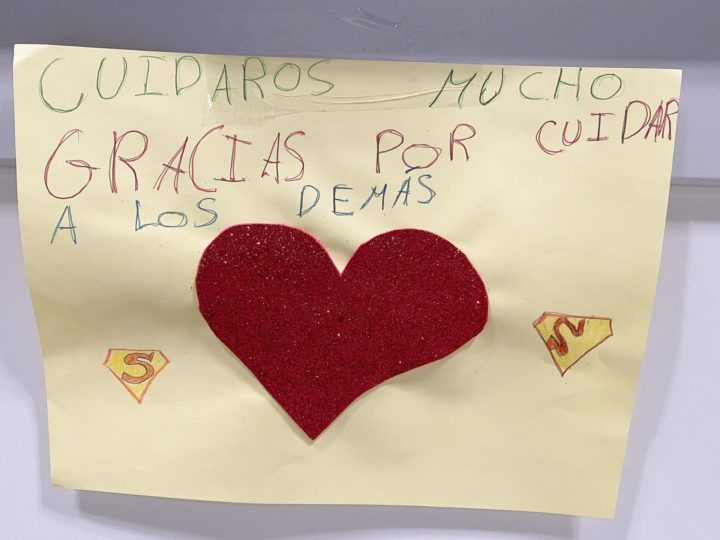 CUIDAROS MUCHO
GRACIAS POR CUIDAR
A LOS DEMÁS
S
S